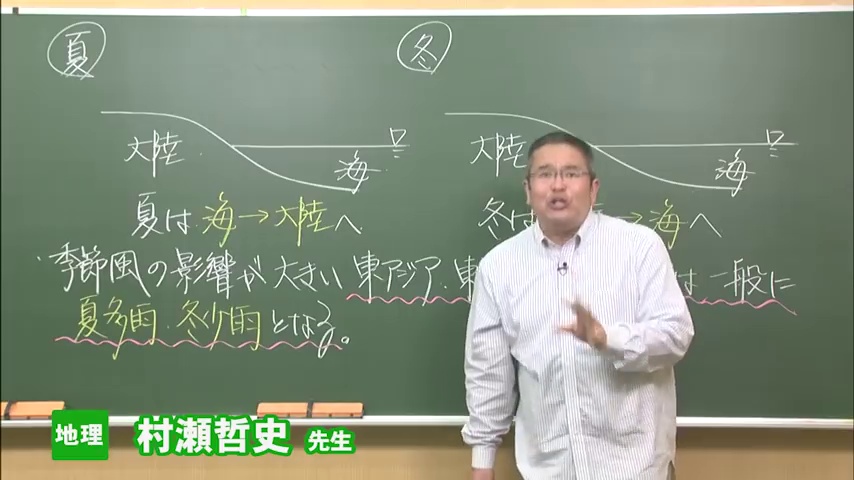 夏
冬
大陸
海
大陸
海
夏は 海→大陸へ
冬は →海へ
季節風の影響が大きい 東アジア・東 は一般に
夏多雨・冬少雨となる。
地理 村瀬哲史 先生